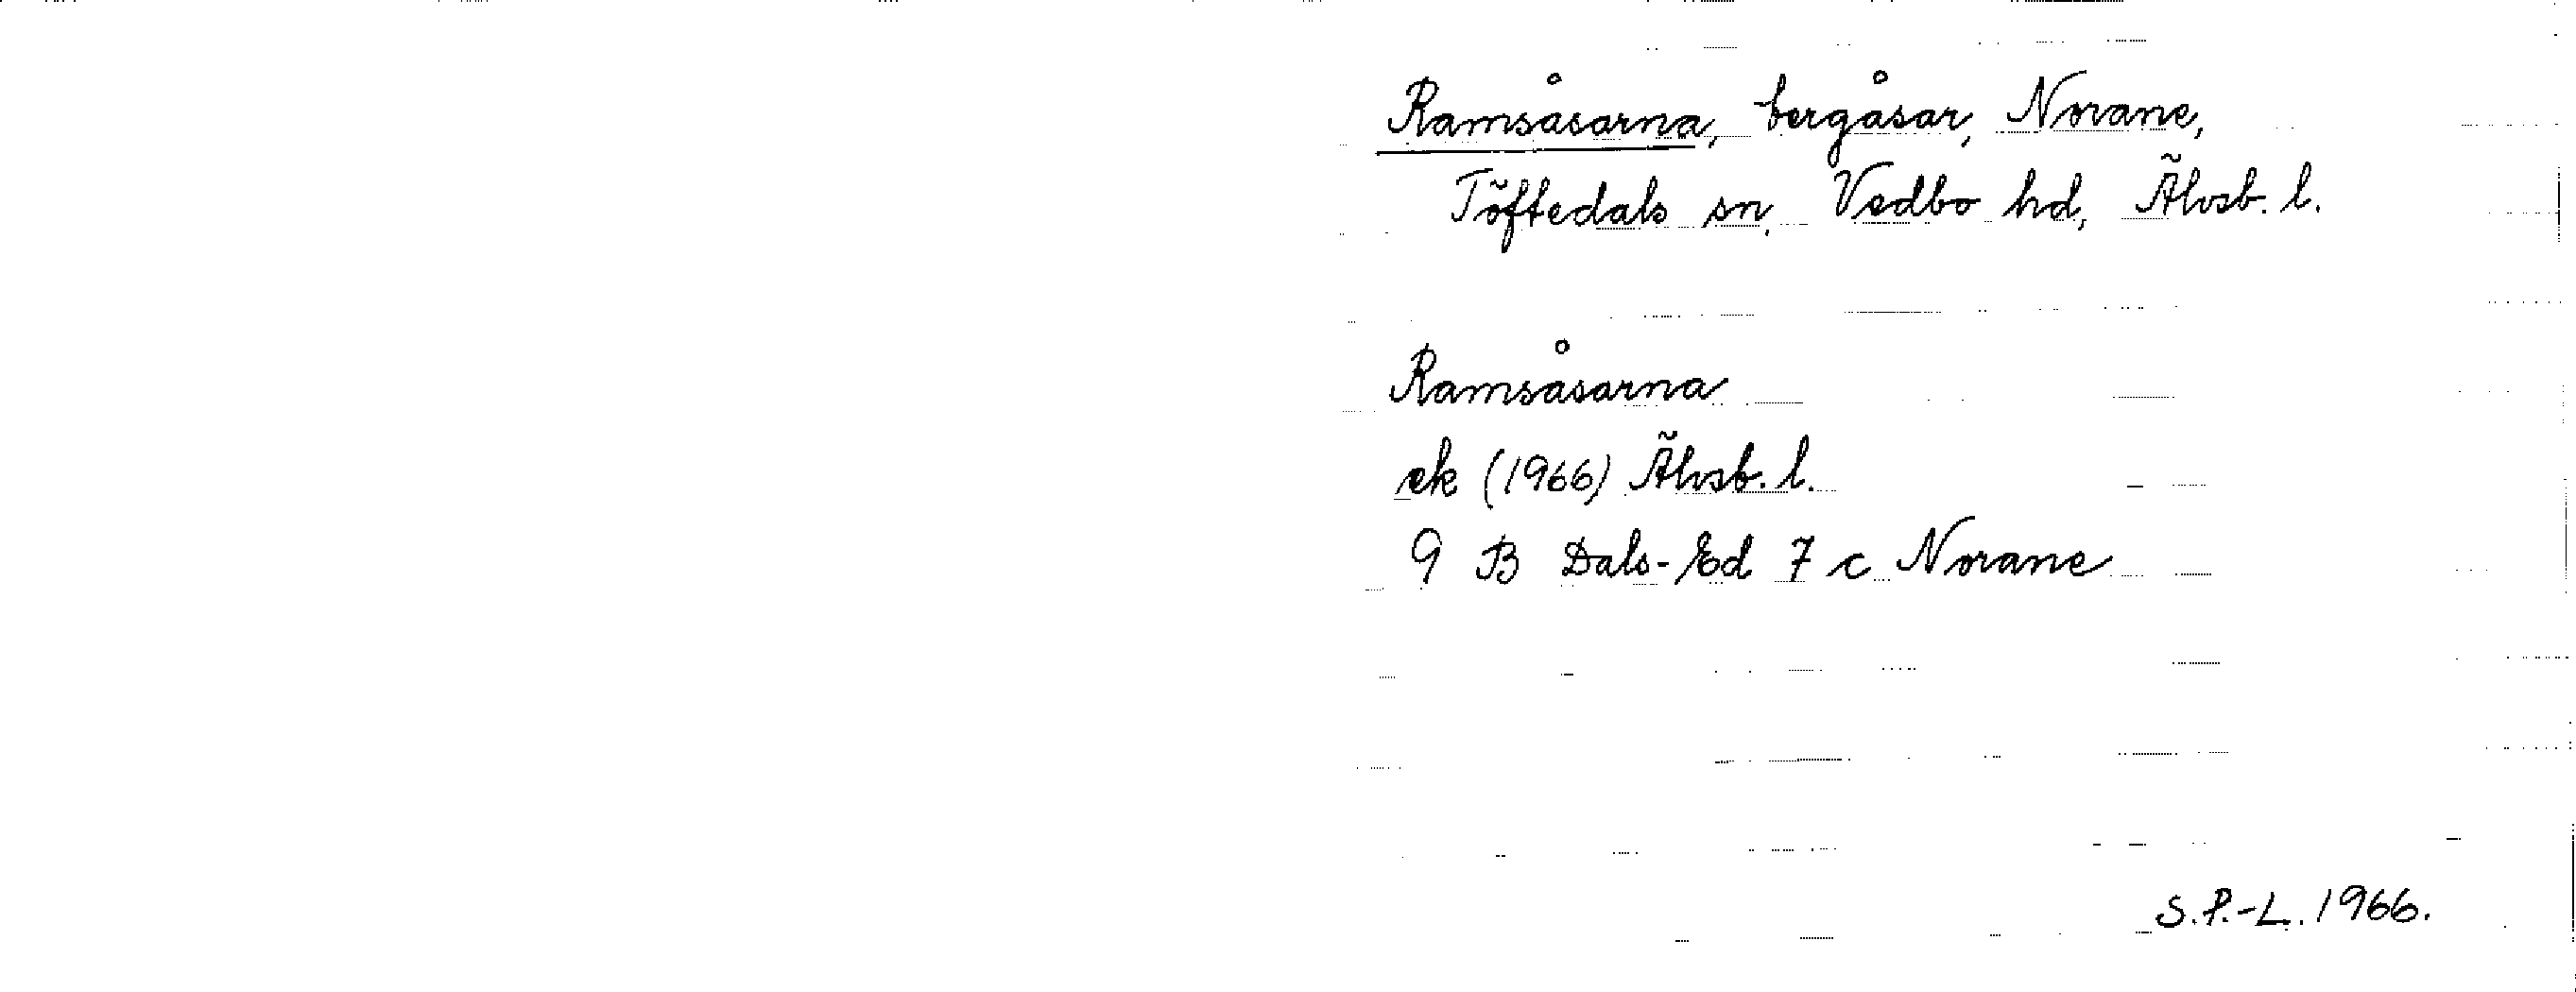 Ramsåsarna, bergåsar, Norane,
Töftedals sn, Vedbo hd, Älvsb. l.
Ramsåsarna
ek (1966) Älvsb. l.
9 B Dals-Ed 7 c Norane
S.P.-L. 1966.